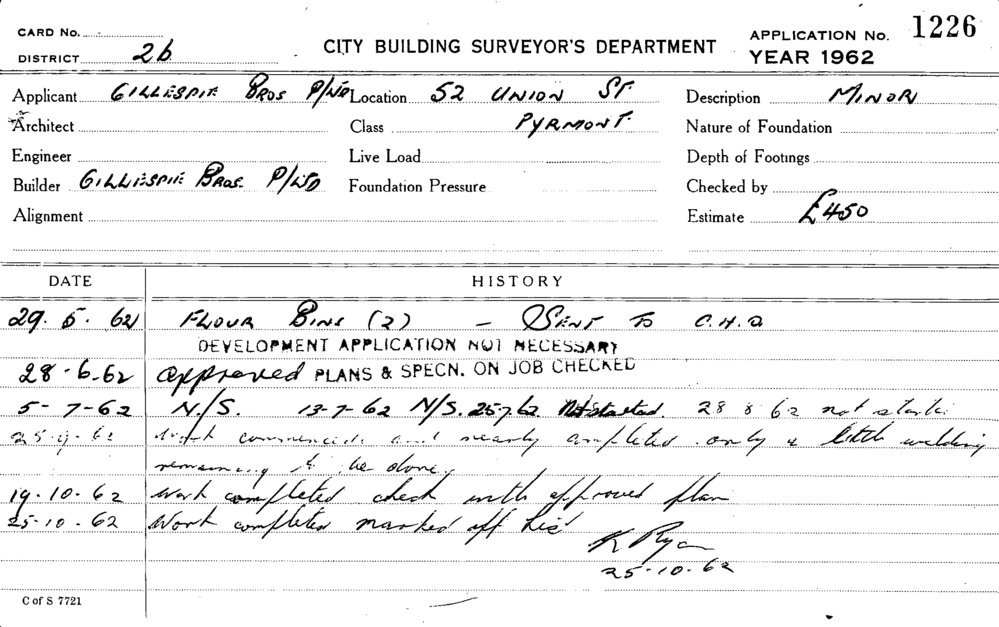 CARD No.
DISTRICT 2b
CITY BUILDING SURVEYOR'S DEPARTMENT
APPLICATION No. 1226
YEAR 1962
Applicant GILLESPIE BROS P/LTD Location 52 UNION ST. Description MINOR
Architect Class PYRMONT. Nature of Foundation
Engineer Live Load Depth of Footings
Builder GILLESPIE BROS. P/LTD Foundation Pressure Checked by
Alignment Estimate £450
DATE HISTORY
29. 5. 62 FLOUR BINS (2) - SENT TO C.H.O
DEVELOPMENT APPLICATION NOT NECESSARY
28-6-62 approved PLANS & SPECN. ON JOB CHECKED
5-7-62 N/S. 13-7-62 N/S. 25.7.62 Not started. 28 8 62 not started
25.9.62 Work commenced and nearly completed only a little welding
remaining to be done.
19.10.62 Work completed check with approved plan
25-10-62 Work completed marked off list
K Ryan
25-10-62
C of S 7721